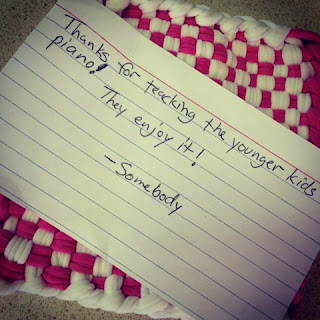 Thanks for teaching the younger kids
piano!
They enjoy it!
-Somebody